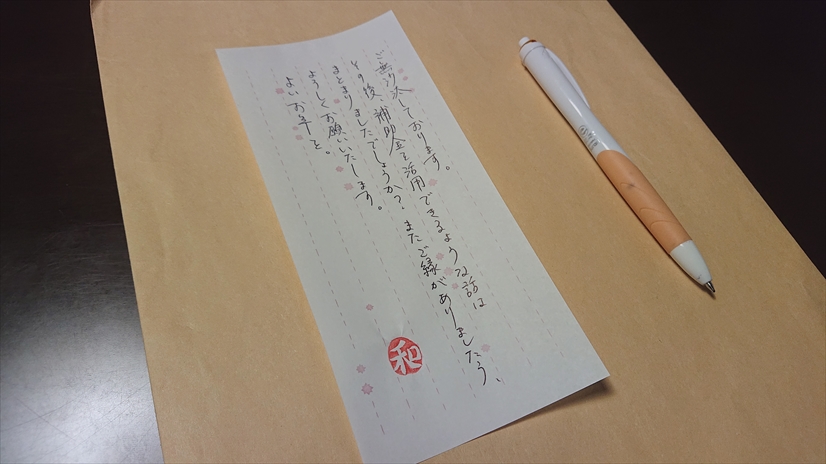 ご無沙汰しております。
その後、補助金を活用できるような話は
まとまりましたでしょうか?またご縁がありましたら、
よろしくお願いいたします。
よいお年を。
和